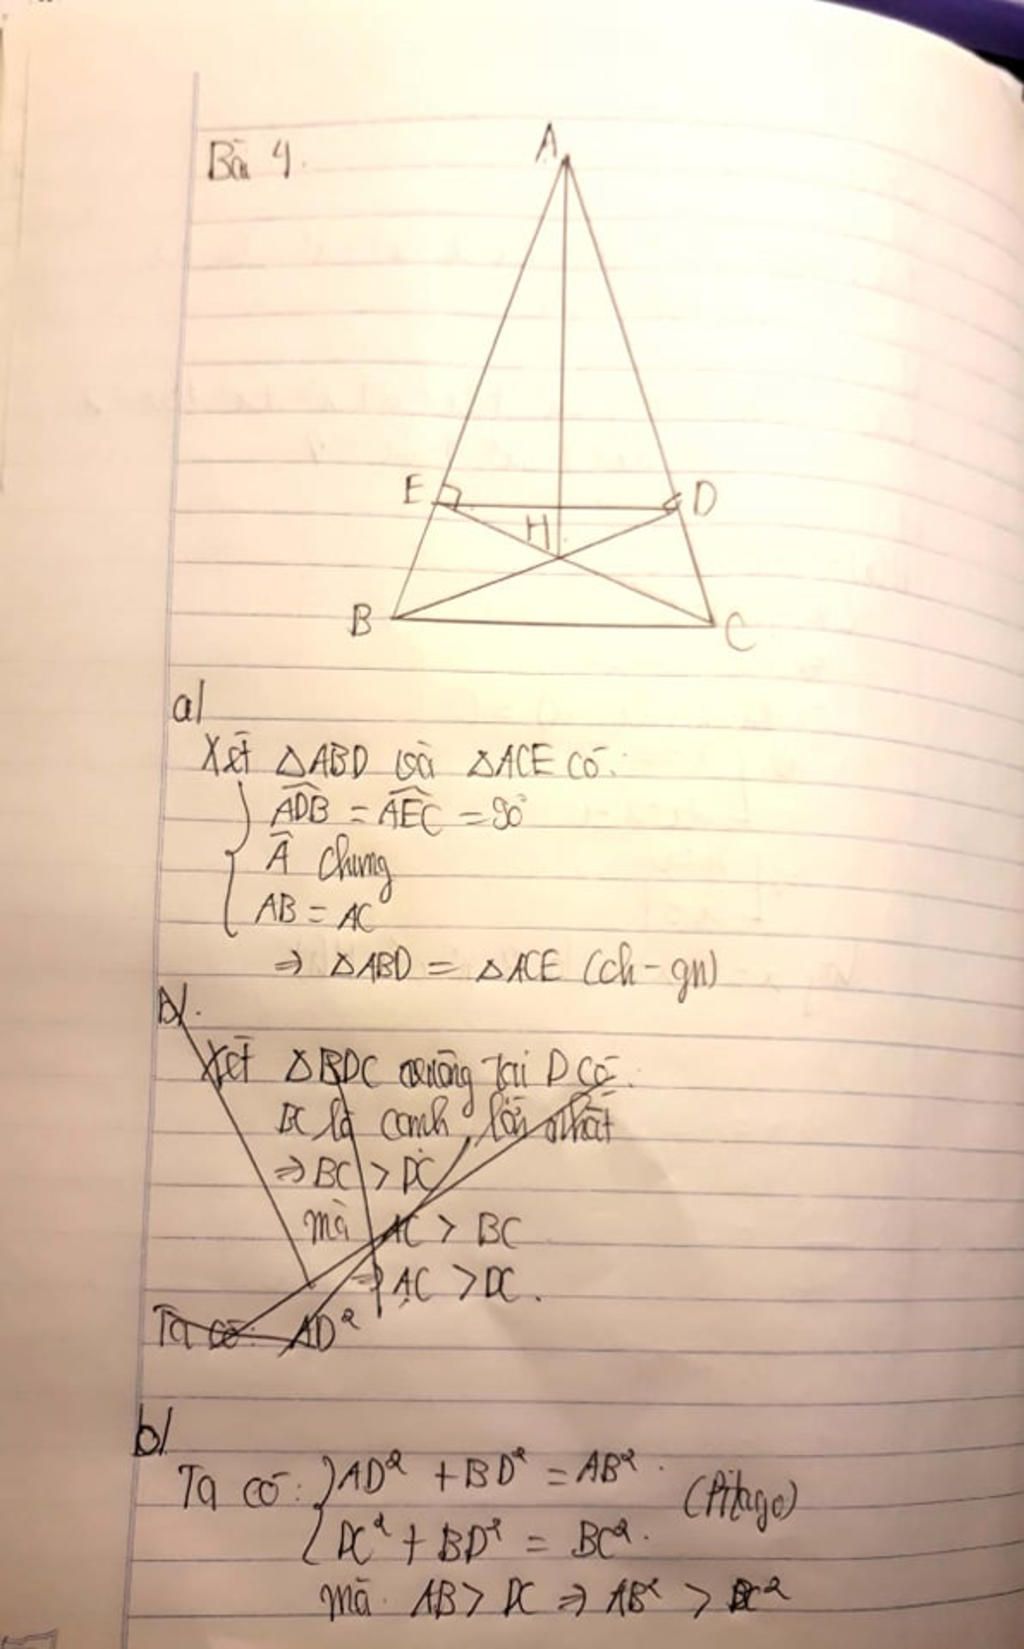 Bài 4.
A
E
D
H
B
C
a/
Xét △ABD và △ACE có:
ADB = AEC = 90°
A chung
AB = AC
⇒ △ABD = △ACE (ch - gn)
b/.
Xét △BDC vuông tại D có:
BC là cạnh lớn nhất
⇒ BC > DC
mà AC > BC
⇒ AC > DC.
Ta có: AD²
b/
Ta có: { AD² + BD² = AB². (Pitago)
DC² + BD² = BC².
mà AB > DC ⇒ AB² > DC²